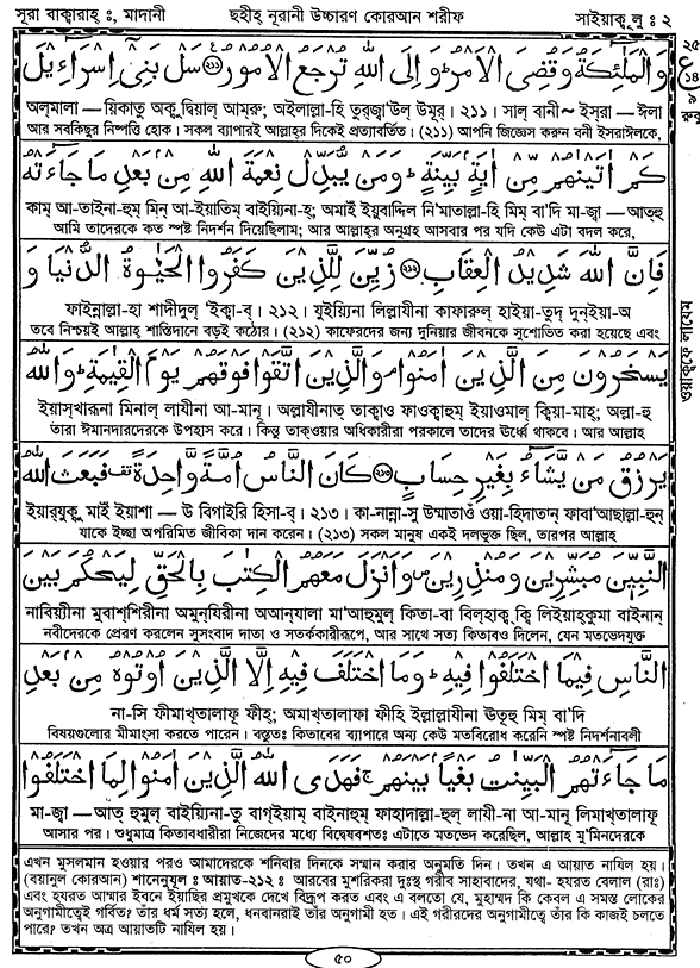 সূরা বাক্বারাহ্ ঃ, মাদানী
ছহীহ্ নূরানী উচ্চারণ কোরআন শরীফ
সাইয়াক্বূ লু ঃ ২
وَالْمَلٰٓئِكَةُ وَقُضِىَ الْاَمْرُ ؕ وَاِلَى اللّٰهِ تُرْجَعُ الْاُمُوْرُ ﴿২১১﴾ سَلْ بَنِىْٓ اِسْرَآءِيْلَ
অল্‌মালা — য়িকাতু অক্বু দ্বিয়াল্ আম্‌রু; অইলাল্লা-হি তুর্‌জ্বা'উল্ উমূর্। ২১১। সাল্ বানী ~ ইস্‌রা — ঈলা
আর সবকিছুর নিষ্পত্তি হোক। সকল ব্যাপারই আল্লাহ্‌র দিকেই প্রত্যাবর্তিত। (২১১) আপনি জিজ্ঞেস করুন বনী ইসরাঈলকে,
كَمْ اٰتَيْنٰهُمْ مِّنْ اٰيَةٍۢ بَيِّنَةٍ ؕ وَمَنْ يُّبَدِّلْ نِعْمَةَ اللّٰهِ مِنْۢ بَعْدِ مَا جَآءَتْهُ
কাম্ আ-তাইনা-হুম্ মিন্ আ-ইয়াতিম্ বাইয়্যিনা-হ্; অমাইঁ ইয়ুবাদ্দিল্ নি'মাতাল্লা-হি মিম্ বা'দি মা-জ্বা — আত্‌হু
আমি তাদেরকে কত স্পষ্ট নিদর্শন দিয়েছিলাম; আর আল্লাহ্‌র অনুগ্রহ আসবার পর যদি কেউ এটা বদল করে,
فَاِنَّ اللّٰهَ شَدِيْدُ الْعِقَابِ ﴿২১২﴾ زُيِّنَ لِلَّذِيْنَ كَفَرُوا الْحَيٰوةُ الدُّنْيَا وَ
ফাইন্নাল্লা-হা শাদীদুল্ 'ইক্বা-ব্। ২১২। যুইয়্যিনা লিল্লাযীনা কাফারুল্ হাইয়া-তুদ্ দুন্‌ইয়া-অ
তবে নিশ্চয়ই আল্লাহ্ শাস্তিদানে বড়ই কঠোর। (২১২) কাফেরদের জন্য দুনিয়ার জীবনকে সুশোভিত করা হয়েছে এবং
يَسْخَرُوْنَ مِنَ الَّذِيْنَ اٰمَنُوْا ۘ وَالَّذِيْنَ اتَّقَوْا فَوْقَهُمْ يَوْمَ الْقِيٰمَةِ ؕ وَاللّٰهُ
ইয়াস্‌খারূনা মিনাল্ লাযীনা আ-মানূ। অল্লাযীনাত্ তাক্বাও ফাওক্বাহুম্ ইয়াওমাল্ ক্বিয়া-মাহ্; অল্লা-হু
তাঁরা ঈমানদারদেরকে উপহাস করে। কিন্তু তাক্‌ওয়ার অধিকারীরা পরকালে তাদের ঊর্ধ্বে থাকবে। আর আল্লাহ
يَرْزُقُ مَنْ يَّشَآءُ بِغَيْرِ حِسَابٍ ﴿২১৩﴾ كَانَ النَّاسُ اُمَّةً وَّاحِدَةً قف فَبَعَثَ اللّٰهُ
ইয়ার্‌যুক্বু মাইঁ ইয়াশা — উ বিগাইরি হিসা-ব্। ২১৩। কা-নান্না-সু উম্মাতাওঁ ওয়া-হিদাতান্ ফাবা'আছাল্লা-হুন্
যাকে ইচ্ছা অপরিমিত জীবিকা দান করেন। (২১৩) সকল মানুষ একই দলভুক্ত ছিল, তারপর আল্লাহ
النَّبِيّٖنَ مُبَشِّرِيْنَ وَمُنْذِرِيْنَ ص وَاَنْزَلَ مَعَهُمُ الْكِتٰبَ بِالْحَقِّ لِيَحْكُمَ بَيْنَ
নাবিয়্যীনা মুবাশ্‌শিরীনা অমুন্‌যিরীনা অআন্‌যালা মা'আহুমুল্ কিতা-বা বিল্‌হাক্ব্ ক্বি লিইয়াহ্‌কুমা বাইনান্
নবীদেরকে প্রেরণ করলেন সুসংবাদ দাতা ও সতর্ককারীরূপে, আর সাথে সত্য কিতাবও দিলেন, যেন মতভেদযুক্ত
النَّاسِ فِيْمَا اخْتَلَفُوْا فِيْهِ ؕ وَمَا اخْتَلَفَ فِيْهِ اِلَّا الَّذِيْنَ اُوْتُوْهُ مِنْۢ بَعْدِ
না-সি ফীমাখ্‌তালাফূ ফীহ্; অমাখ্‌তালাফা ফীহি ইল্লাল্লাযীনা ঊতূহু মিম্ বা'দি
বিষয়গুলোর মীমাংসা করতে পারেন। বস্তুতঃ কিতাবের ব্যাপারে অন্য কেউ মতবিরোধ করেনি স্পষ্ট নিদর্শনাবলী
مَا جَآءَتْهُمُ الْبَيِّنٰتُ بَغْيًۢا بَيْنَهُمْ ۚ فَهَدَى اللّٰهُ الَّذِيْنَ اٰمَنُوْا لِمَا اخْتَلَفُوْا
মা-জ্বা — আত্ হুমুল্ বাইয়্যিনা-তু বাগ্‌ইয়াম্ বাইনাহুম্ ফাহাদাল্লা-হুল্ লাযী-না আ-মানূ লিমাখ্‌তালাফূ
আসার পর। শুধুমাত্র কিতাবধারীরা নিজেদের মধ্যে বিদ্বেষবশতঃ এটাতে মতভেদ করেছিল, আল্লাহ মু'মিনদেরকে
এখন মুসলমান হওয়ার পরও আমাদেরকে শনিবার দিনকে সম্মান করার অনুমতি দিন। তখন এ আয়াত নাযিল হয়।
(বয়ানুল কোরআন) শানেনুযূল ঃ আয়াত-২১২ ঃ আরবের মুশরিকরা দুঃস্থ গরীব সাহাবাদের, যথা- হযরত বেলাল (রাঃ)
এবং হযরত আম্মার ইবনে ইয়াছির প্রমুখকে দেখে বিদ্রূপ করত এবং এ বলতো যে, মুহাম্মদ কি কেবল এ সমস্ত লোকের
অনুগামীত্বেই গর্বিত? তাঁর ধর্ম সত্য হলে, ধনবানরাই তাঁর অনুগামী হত। এই গরীবদের অনুগামীত্বে তাঁর কি কাজই চলতে
পারে? তখন অত্র আয়াতটি নাযিল হয়।
২৫
ع
১৪
৯
রুকু
ওয়াক্বফে লাযেম
৫০